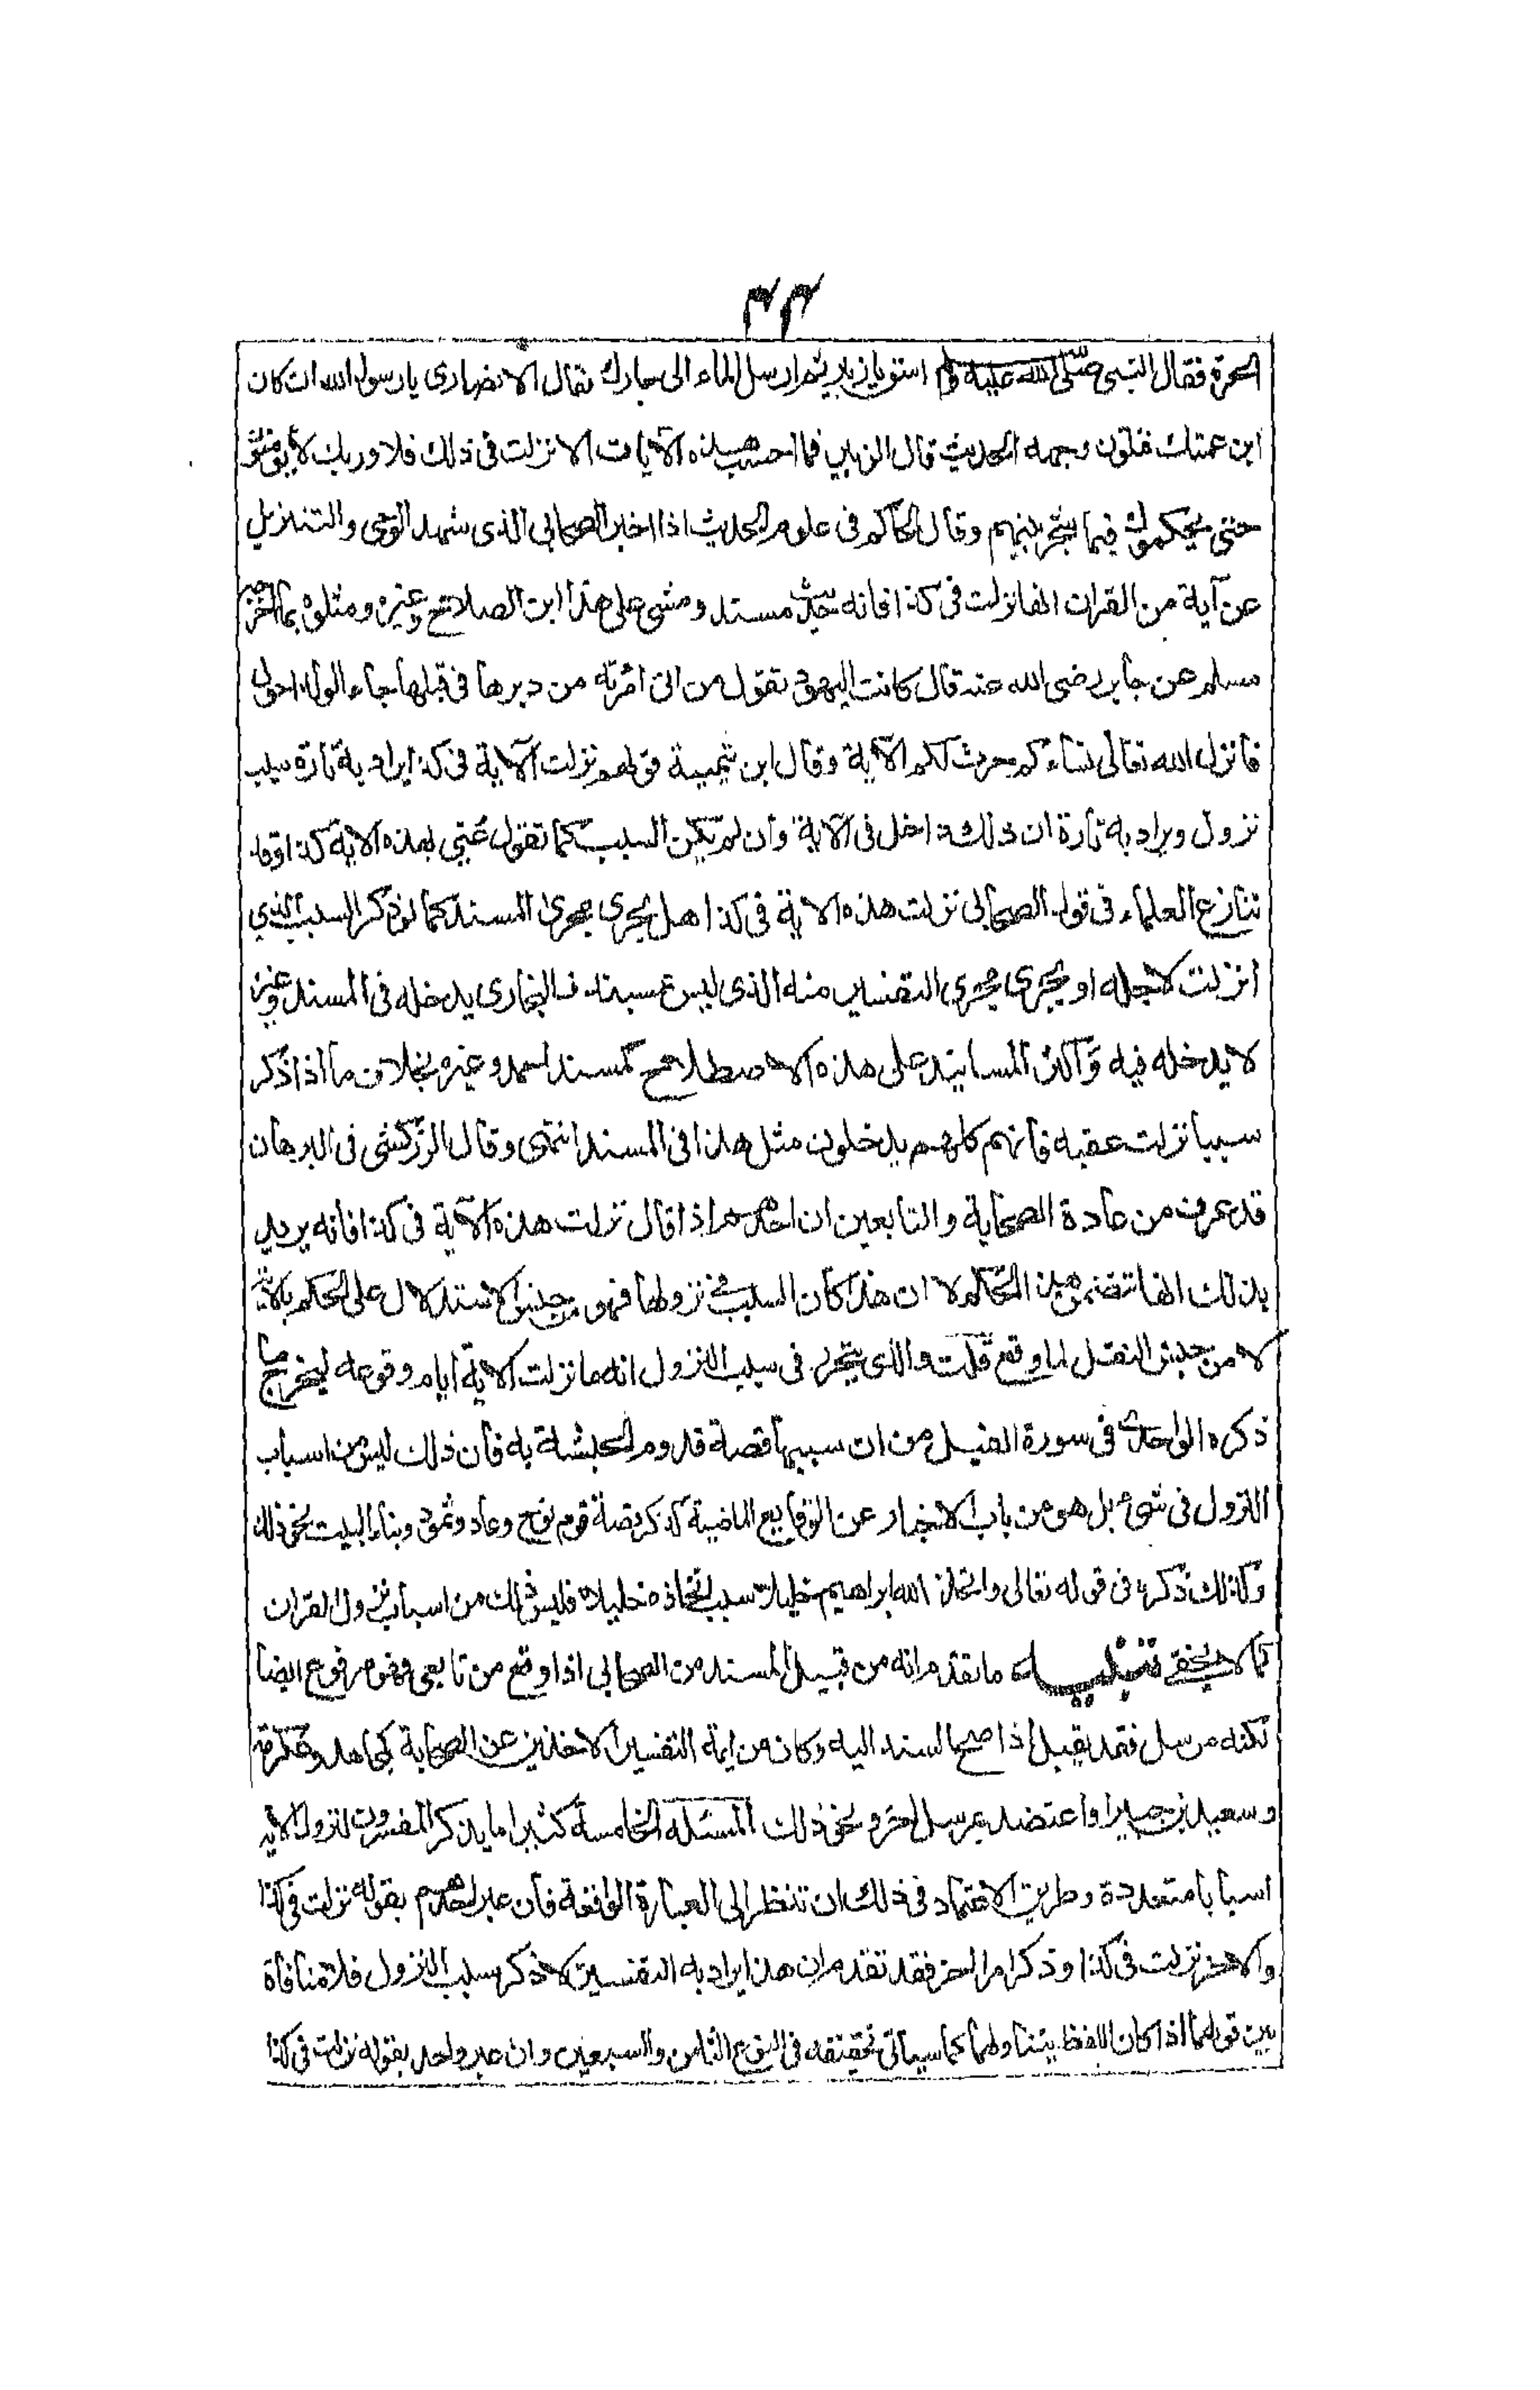 ٤٤
الحرة فقال النبى صلى الله عليه وسلم استق يا زبير ثم ارسل الماء الى جارك فقال الانصارى يا رسول الله ان كان
ابن عمتك فتلون وجهه الحديث قال الزبير فما احسب هذه الآيات الا نزلت فى ذلك فلا وربك لا يؤمنون
حتى يحكموك فيما شجر بينهم وقال الحاكم فى علوم الحديث اذا اخبر الصحابى الذى شهد الوحى والتنزيل
عن آية من القران انها نزلت فى كذا فانه حديث مسند ومشى على هذا ابن الصلاح وغيره ومثلوه بما اخرجه
مسلم عن جابر رضى الله عنه قال كانت اليهود تقول من اتى امرأته من دبرها فى قبلها جاء الولد احول
فانزل الله تعالى نساءكم حرث لكم الآية وقال ابن تيمية قولهم نزلت الآية فى كذا يراد به تارة سبب
نزول ويراد به تارة ان ذلك داخل فى الآية وان لم يكن السبب كما تقول عنى بهذه الاية كذا وقد
تنازع العلماء فى قول الصحابى نزلت هذه الاية فى كذا هل يجرى مجرى المسند كما لو ذكر السبب الذي
انزلت لاجله او يجرى مجرى التفسير منه الذى ليس بمسند فالبخارى يدخله فى المسند وغيره
لا يدخله فيه واكثر المسانيد على هذه الاصطلاح كمسند احمد وغيره بخلاف ما اذا ذكر
سببا نزلت عقبه فانهم كلهم يدخلون مثل هذا فى المسند انتهى وقال الزركشى فى البرهان
قد عرف من عادة الصحابة والتابعين ان احدهم اذا قال نزلت هذه الآية فى كذا فانه يريد
بذلك انها تتضمن هذا الحكم لا ان هذا كان السبب فى نزولها فهو من جنس الاستدلال على الحكم بالآية
لا من جنس النقل لما وقع قلت والذى يتحرر فى سبب النزول انه ما نزلت الاية ايام وقوعه ليخرج ما
ذكره الواحدى فى سورة الفيل من ان سببها قصة قدوم الحبشة به فان ذلك ليس من اسباب
النزول فى شىء بل هو من باب الاخبار عن الوقايع الماضية كذكر قصة قوم نوح وعاد وثمود وبناء البيت ونحو ذلك
وكذلك ذكره فى قوله تعالى واتخذ الله ابراهيم خليلا سبب اتخاذه خليلا فليس ذلك من اسباب نزول القران
كما لا يخفى تنبيه ما تقدم انه من قبيل المسند من الصحابى اذا وقع من تابعى فهو مرفوع ايضا
لكنه مرسل فقد يقبل اذا صح السند اليه وكان من ايمة التفسير الاخذين عن الصحابة كمجاهد وعكرمة
وسعيد بن جبير او اعتضد بمرسل اخر ونحو ذلك المسئلة الخامسة كثيرا ما يذكر المفسرون لنزول الاية
اسبابا متعددة وطريق الاعتماد فى ذلك ان تنظر الى العبارة الواقعة فان عبر احدهم بقوله نزلت فى كذا
والاخر نزلت فى كذا وذكر امرا اخر فقد تقدم ان هذا يراد به التفسير لا ذكر سبب النزول فلا منافاة
بين قولهما اذا كان اللفظ يتناولهما كما سيأتى تحقيقه فى النوع الثامن والسبعين وان عبر واحد بقوله نزلت فى كذا